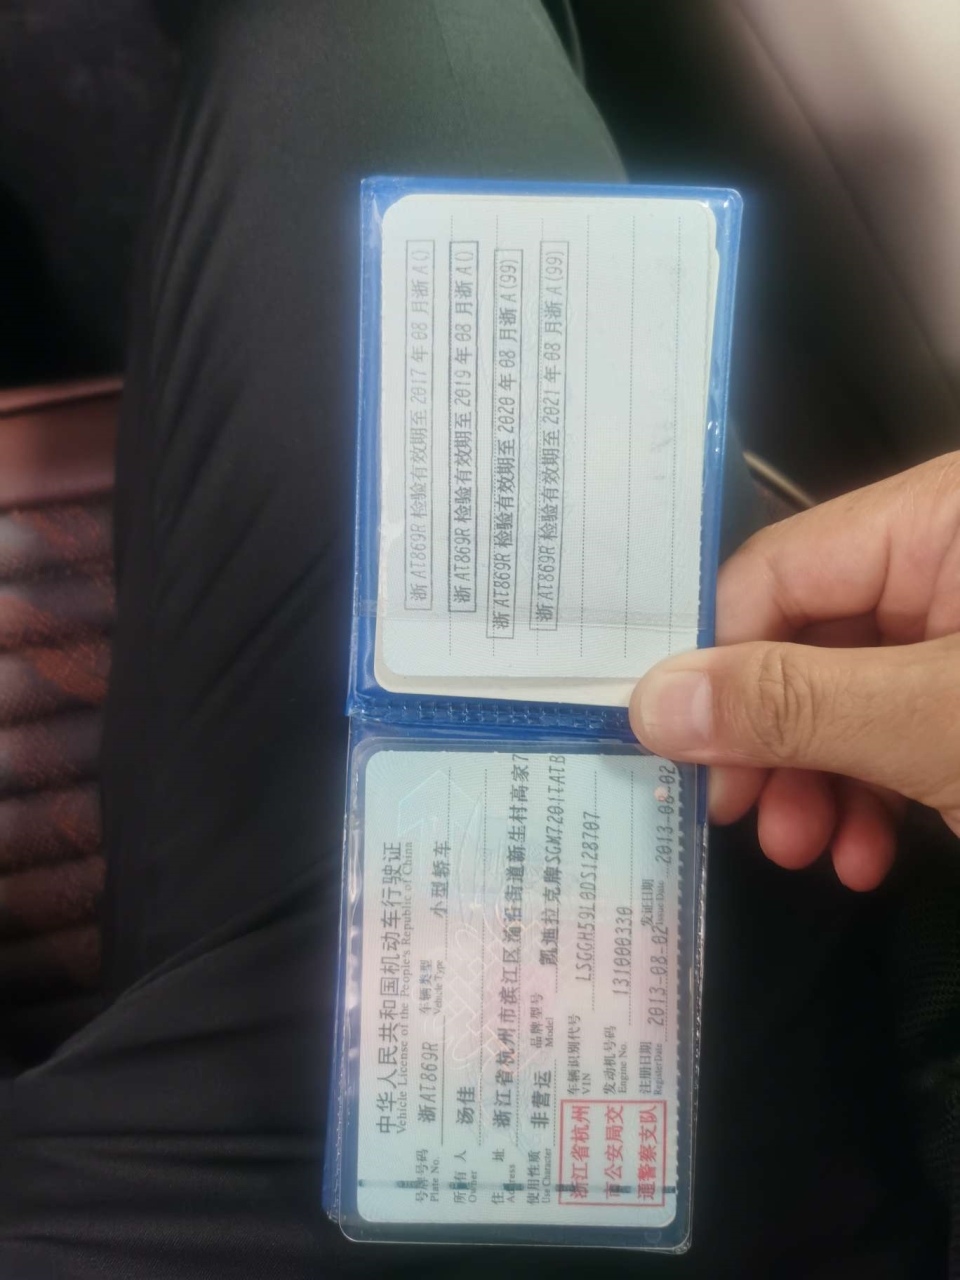 中华人民共和国机动车行驶证
Vehicle License of the People's Republic of China
号牌号码 浙AT869R 车辆类型 小型轿车
Plate No. Vehicle Type
所有人 汤佳
Owner
住址 浙江省杭州市滨江区浦沿街道新生村高家7
Address
使用性质 非营运 品牌型号 凯迪拉克牌SGM7201TATB
Use Character Model
浙江省杭州
市公安局交
通警察支队
车辆识别代号 LSGGH59L0DS128707
VIN
发动机号码 131000330
Engine No.
注册日期 2013-08-02 发证日期 2013-08-02
Register Date Issue Date
浙AT869R 检验有效期至 2017年08月浙A()
浙AT869R 检验有效期至 2019年08月浙A()
浙AT869R 检验有效期至 2020年08月浙A(99)
浙AT869R 检验有效期至 2021年08月浙A(99)